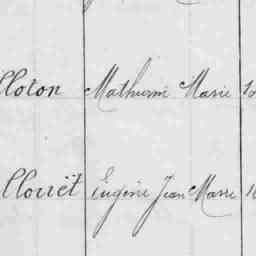 lloton Mathurin Marie 1
llouët Eugène Jean Marie 1